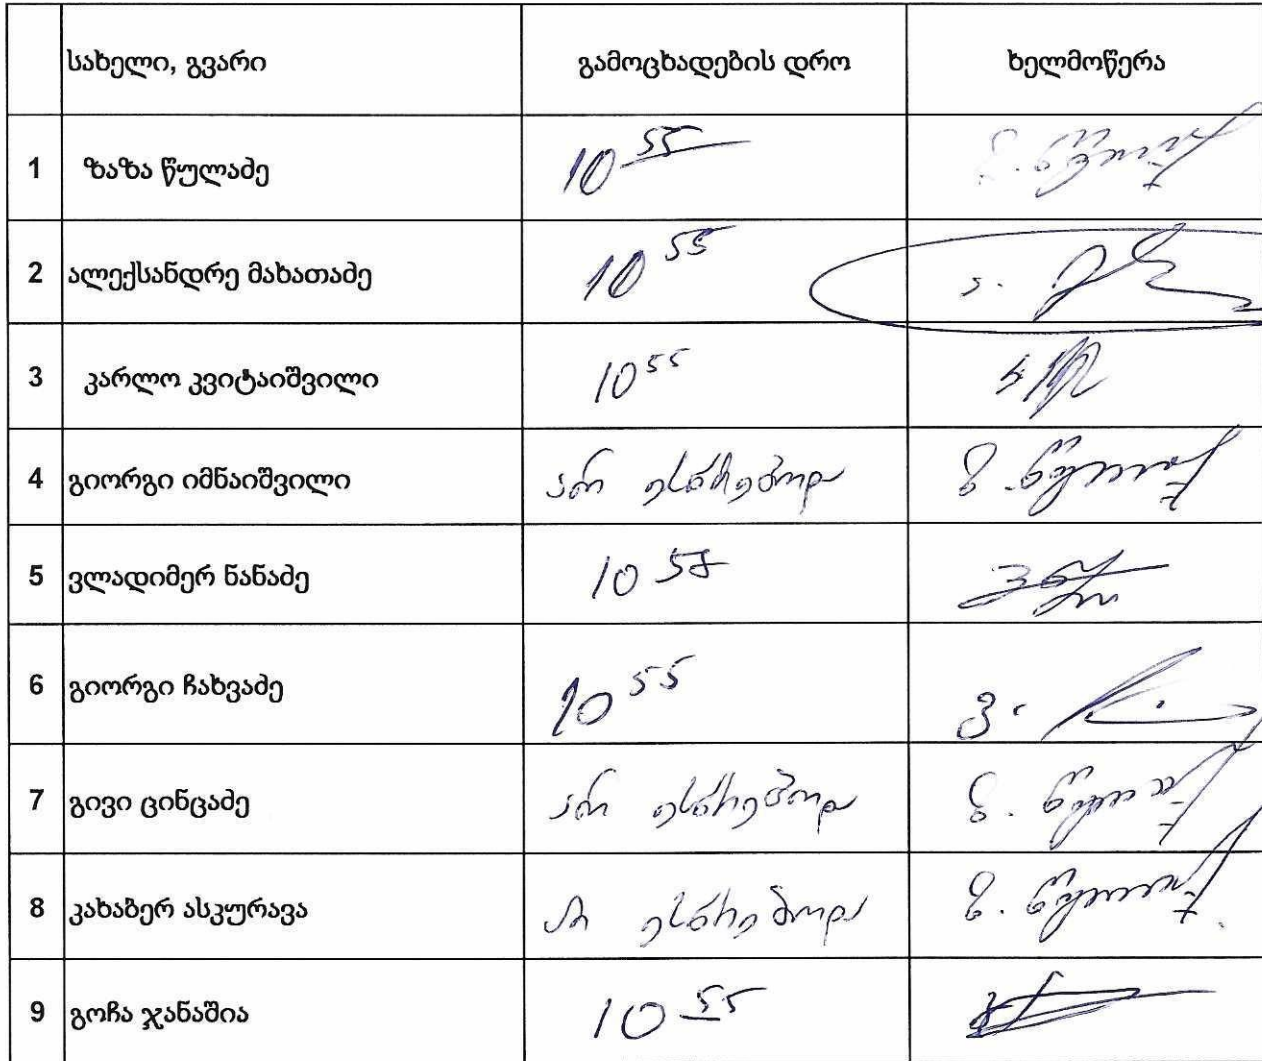 სახელი, გვარი გამოცხადების დრო ხელმოწერა
1 ზაზა წულაძე 10 55 ზ. წულაძე
2 ალექსანდრე მახათაძე 10 55
3 კარლო კვიტაიშვილი 10 55
4 გიორგი იმნაიშვილი არ ესწრებოდა ზ. წულაძე
5 ვლადიმერ ნანაძე 10 58
6 გიორგი ჩახვაძე 10 55
7 გივი ცინცაძე არ ესწრებოდა ზ. წულაძე
8 კახაბერ ასკურავა არ ესწრებოდა ზ. წულაძე
9 გოჩა ჯანაშია 10 55